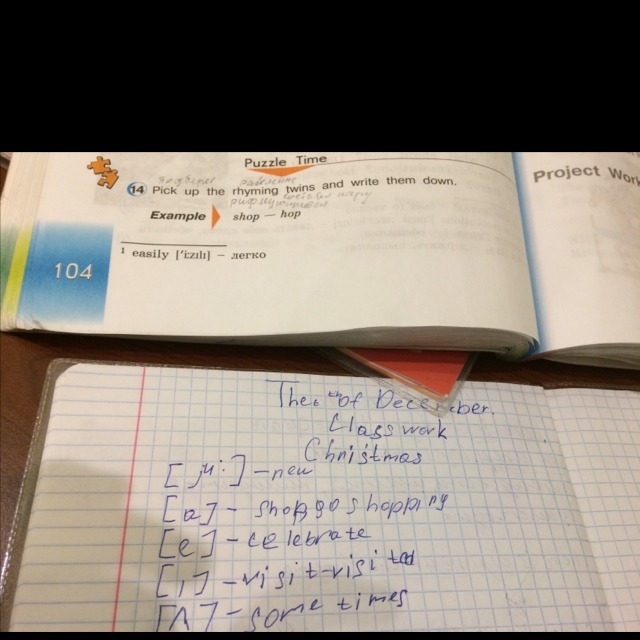 Puzzle Time
Project Work
14 Pick up the rhyming twins and write them down.
Example shop — hop
¹ easily [ˈiːzɪlɪ] — легко
104
of December.
Class work
Christmas
[ju:] - new
[ɒ] - shop go shopping
[e] - celebrate
[ɪ] - visit - visit
[ʌ] - some times